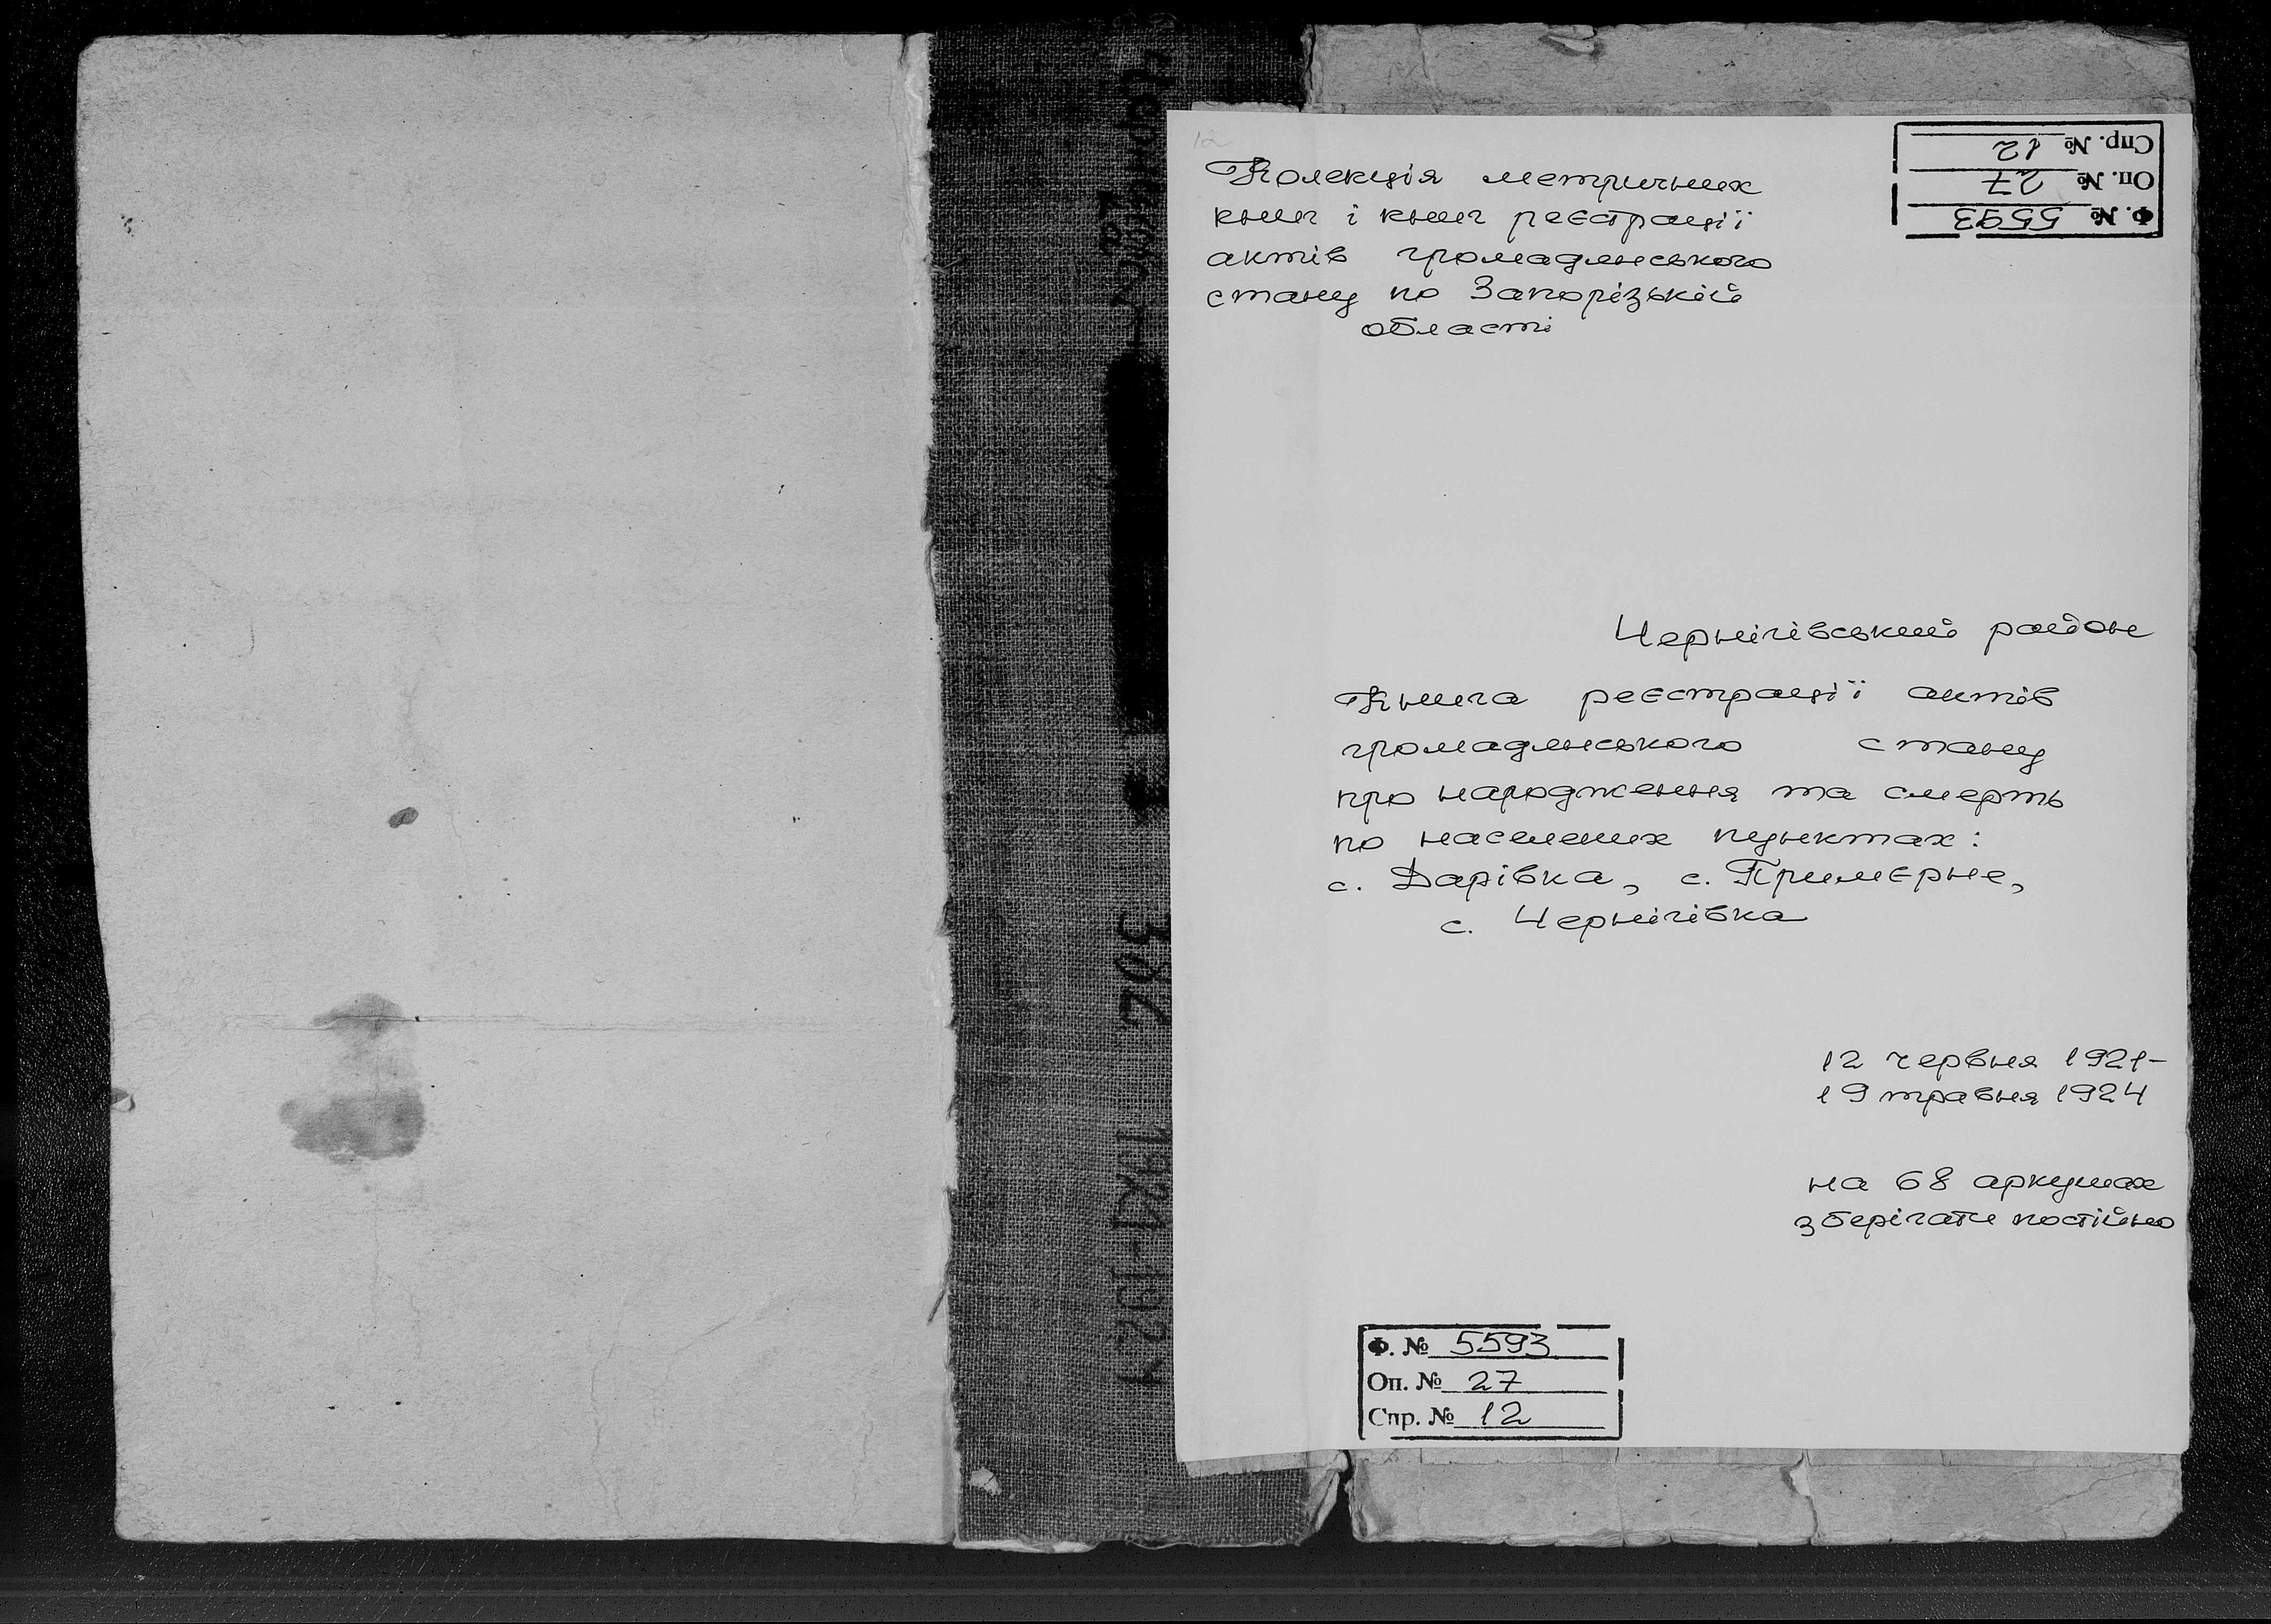 12
Спр. № 12
Оп. № 27
Ф. № 5593
Колекція метричних
книг і книг реєстрації
актів громадянського
стану по Запорізькій
області
Чернігівський район
Книга реєстрації актів
громадянського стану
про народження та смерть
по населених пунктах:
с. Дарівка, с. Примєрне,
с. Чернігівка
12 червня 1921-
19 травня 1924
на 68 аркушах
зберігати постійно
Ф. № 5593
Оп. № 27
Спр. № 12
302
1921-1924